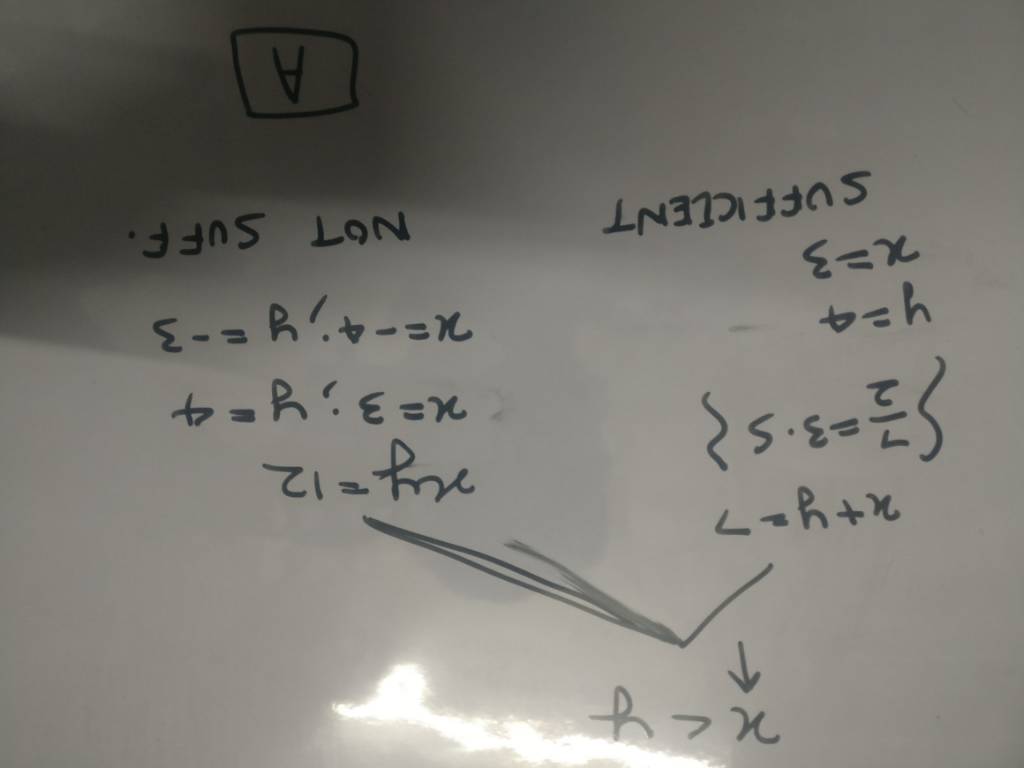 x < y
x + y = 7
{ 7/2 = 3.5 }
y = 4
x = 3
SUFFICIENT
xy = 12
x = 3; y = 4
x = -4; y = -3
NOT SUFF.
A